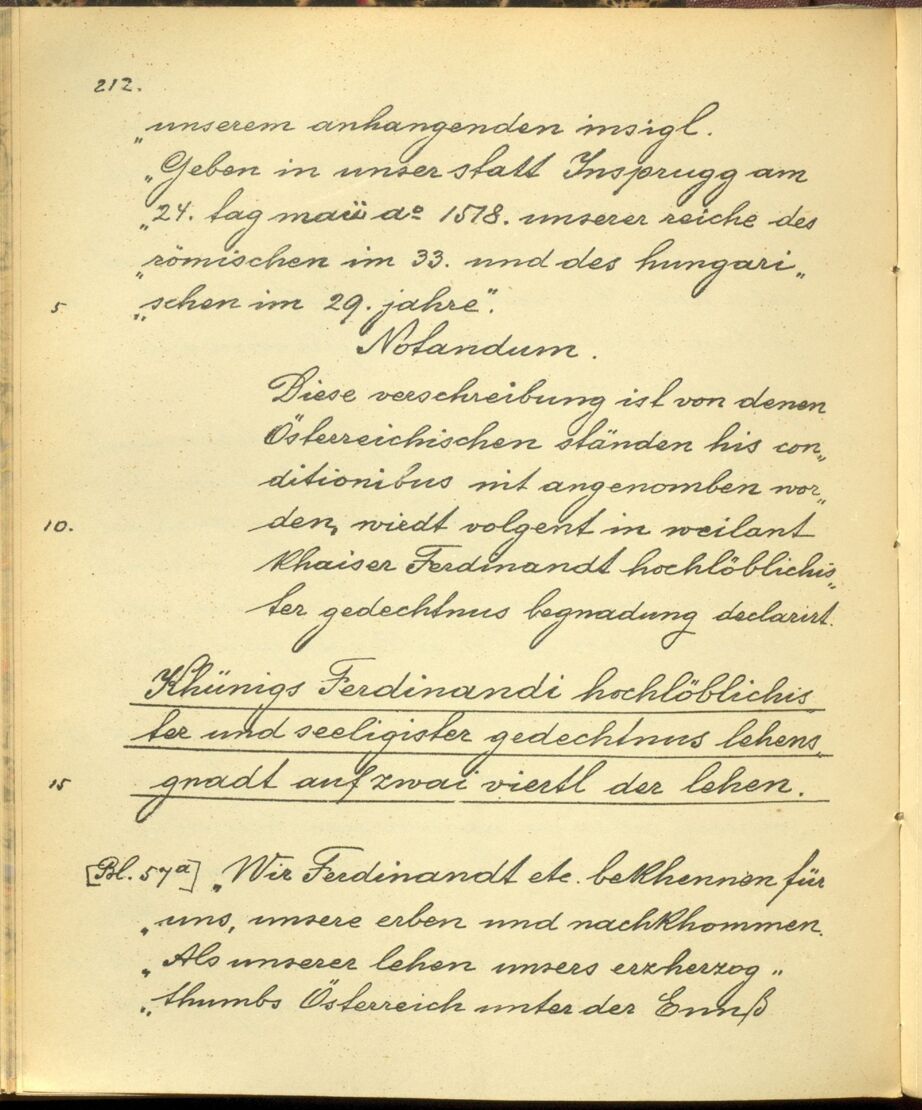 212.
„unserem anhangenden insigl.
„Geben in unser statt Insprugg am
„24. tag maii aº 1518. unserer reiche des
„römischen im 33. und des hungari„
5 „schen im 29. jahre“.
Notandum.
Diese verschreibung ist von denen
Österreichischen ständen his con„
ditionibus nit angenomben wor„
10. den, wirdt volgent in weilant
Khaiser Ferdinandt hochlöblichis„
ter gedechtnus begnadung declarirt.
Khünigs Ferdinandi hochlöblichis
ter und seeligister gedechtnus lehens„
15 gnadt auf zwai viertl der lehen.
[Bl. 57ª] „Wir Ferdinandt etc. bekhennen für
„uns, unsere erben und nachkhommen.
„Als unserer lehen unsers erzherzog„
„thumbs Österreich unter der Ennß